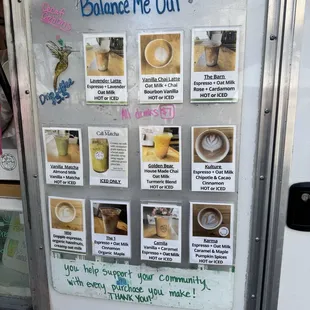 Balance Me Out
Lavender Latte
Espresso + Lavender
Oat Milk
HOT or ICED
Vanilla Chai Latte
Oat Milk + Chai
Bourbon Vanilla
HOT or ICED
The Barn
Espresso + Oat Milk
Rose + Cardamom
HOT or ICED
Vanilla Matcha
Almond Milk
Vanilla + Matcha
HOT or ICED
Cafe Matcha
ICED ONLY
Golden Bear
House Made Chai
Oat Milk
Turmeric Blend
HOT or ICED
Kulture
Espresso + Oat Milk
Chipotle & Cacao
Cinnamon
HOT or ICED
HOT or ICED
The 1
Espresso + Oat Milk
Cinnamon
Organic Maple
Camila
Vanilla + Caramel
Espresso + Oat Milk
HOT or ICED
Karma
Espresso + Oat Milk
Caramel & Maple
Pumpkin Spices
HOT or ICED
You help support your community
with every purchase you make!
THANK YOU!